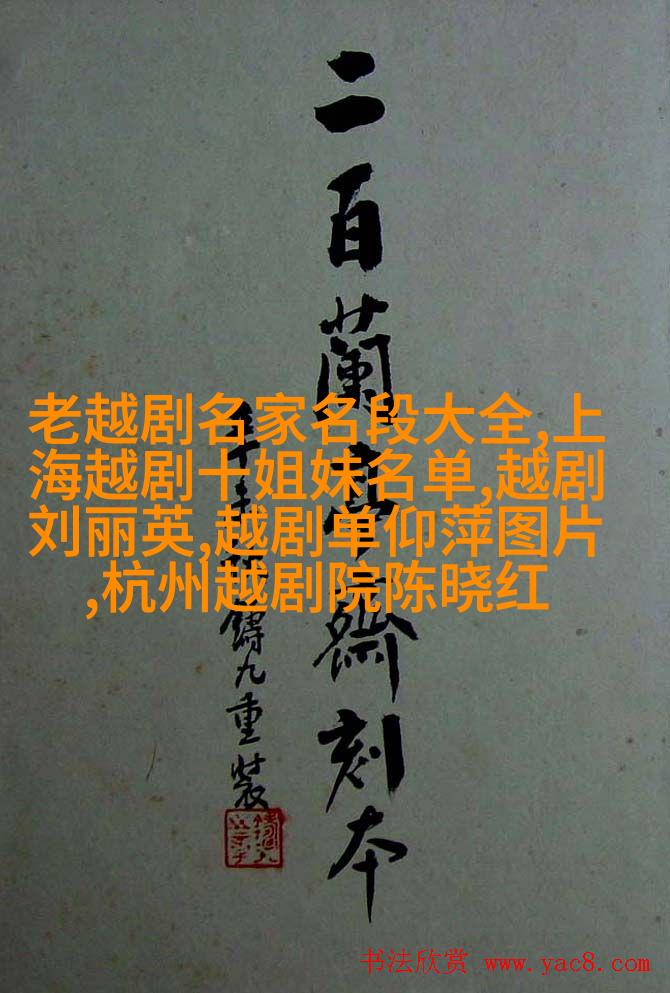 二百蘭亭齋刻本
鑄九重裝
老越剧名家名段大全,上
海越剧十姐妹名单,越剧
刘丽英,越剧单仰萍图片
,杭州越剧院陈晓红
书法欣赏 www.yac8.com